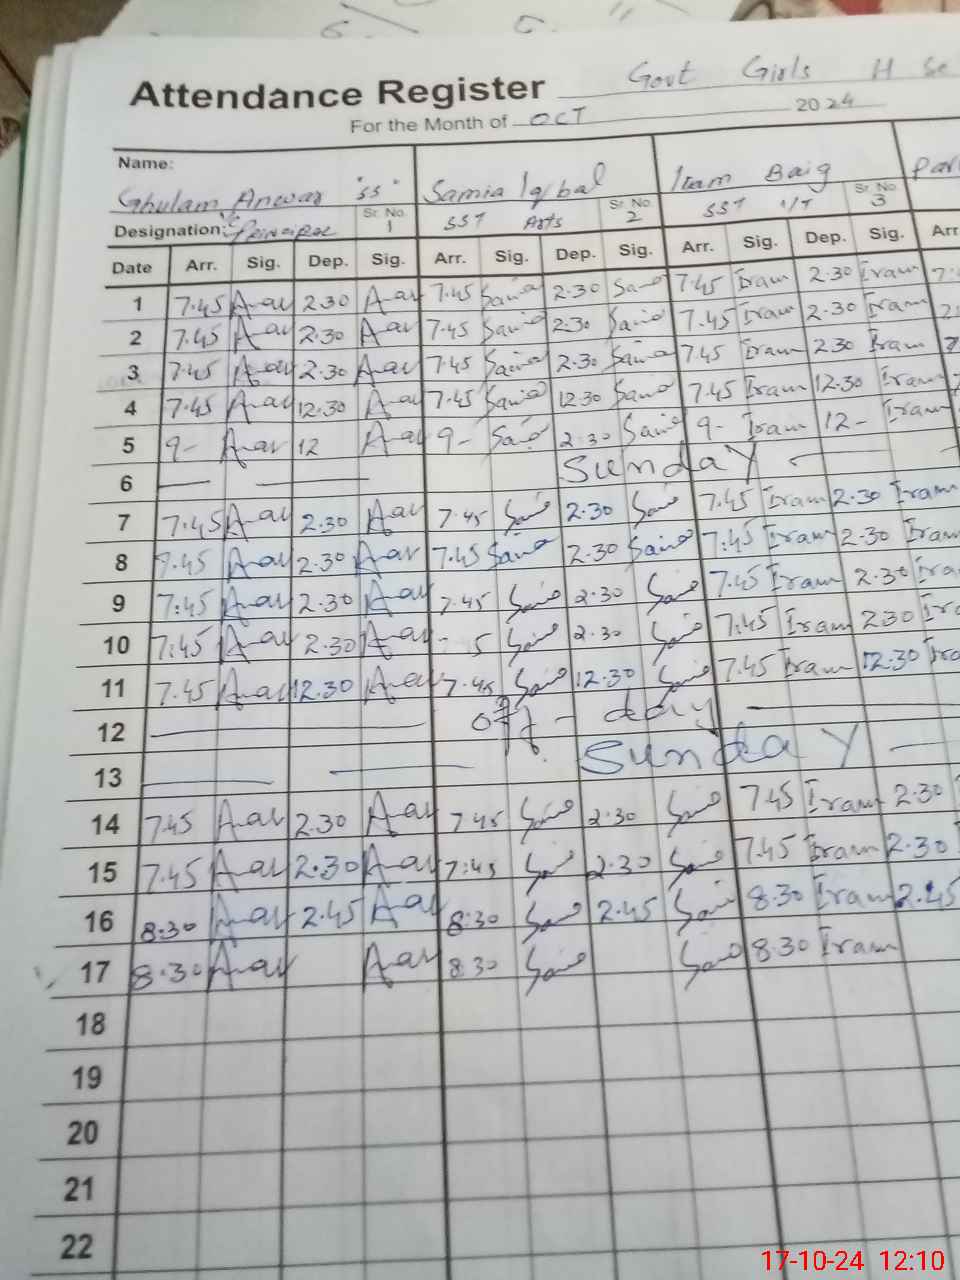 Attendance Register Govt Girls H Se
For the Month of OCT 2024
Name: Ghulam Anwar "SS" Samia Iqbal Iram Baig
Designation: Principal Sr. No. 1 SST Arts Sr. No. 2 SST Sr. No. 3
Date Arr. Sig. Dep. Sig. Arr. Sig. Dep. Sig. Arr. Sig. Dep. Sig. Arr
1 7.45 Aar 2.30 Aar 7.45 Samia 2.30 Sam 7.45 Iram 2.30 Iram
2 7.45 Aar 2.30 Aar 7.45 Samia 2.30 Samia 7.45 Iram 2.30 Iram
3 7.45 Aar 2.30 Aar 7.45 Samia 2.30 Samia 7.45 Iram 2 30 Iram
4 7.45 Aar 12.30 Aar 7.45 Samia 12.30 Samia 7.45 Iram 12.30 Iram
5 9- Aar 12 Aar 9- Samia 2.30 Samia 9- Iram 12- Iram
6 Sunday
7 7.45 Aar 2.30 Aar 7.45 Samia 2.30 Samia 7.45 Iram 2.30 Iram
8 7.45 Aar 2.30 Aar 7.45 Samia 2.30 Samia 7:45 Iram 2.30 Iram
9 7:45 Aar 2.30 Aar 7.45 Samia 2.30 Samia 7.45 Iram 2.30 Ira
10 7:45 Aar 2.30 Aar 5 Samia 2.30 Samia 7.45 Iram 2.30 Ira
11 7.45 Aar 12.30 Aar 7.45 Samia 12.30 Samia 7.45 Iram 12.30 Ira
12 off - day
13 Sunday
14 7.45 Aar 2.30 Aar 7.45 Samia 2.30 Samia 7.45 Iram 2.30
15 7.45 Aar 2.30 Aar 7:45 Samia 2.30 Samia 7.45 Iram 2.30
16 8.30 Aar 2.45 Aar 8:30 Samia 2.45 Samia 8.30 Iram 2.45
17 8.30 Aar Aar 8.30 Samia Samia 8.30 Iram
18
19
20
21
22
17-10-24 12:10